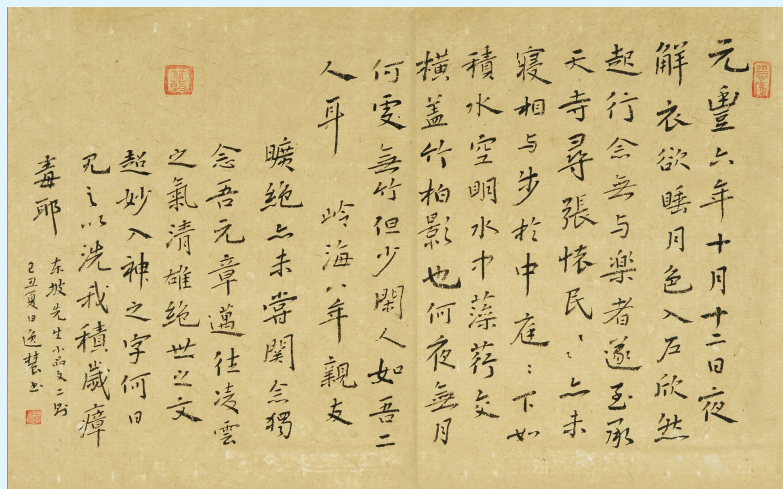 元豐六年十月十二日夜
解衣欲睡月色入户欣然
起行念無与樂者遂至承
天寺尋張懷民〻亦未
寢相与步於中庭〻下如
積水空明水中藻荇交
橫蓋竹柏影也何夜無月
何處無竹但少閑人如吾二
人耳 岭海八年親友
曠絕亦未嘗關念獨
念吾元章邁往凌雲
之氣清雄絕世之文
超妙入神之字何日
見之以洗我積歲瘴
毒耶
东坡先生小品文二则
己丑夏日逸书